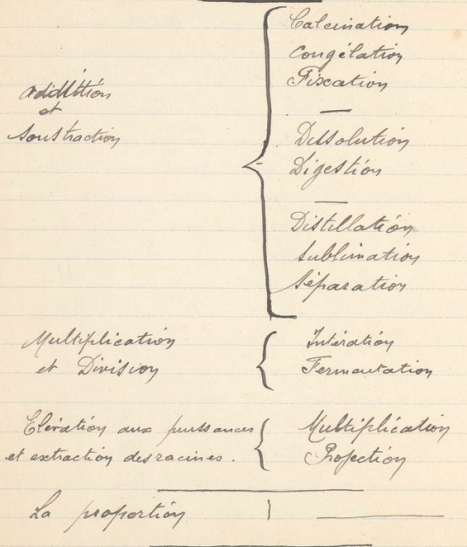 Calcination
Congélation
Fixation
addition
et
soustraction
Dissolution
Digestion
Distillation
Sublimation
Séparation
Multiplication
et Division
Intération
Fermentation
Elévation aux puissances
et extraction des racines.
Multiplication
Projection
La proportion